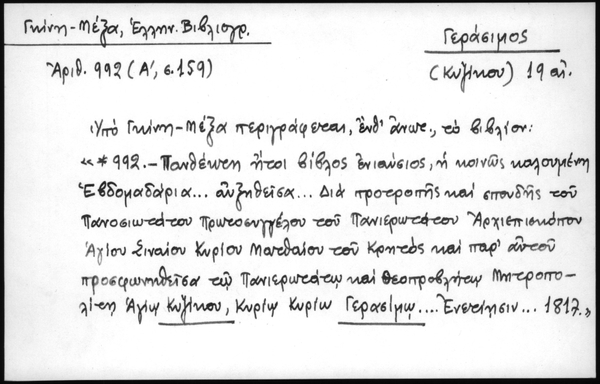 Γκίνη-Μέξα, Ἑλλην. Βιβλιογρ.
Γεράσιμος
Ἀριθ. 992 (Α΄, σ. 159)
(Κυζίκου) 19 αἰ.
Ὑπὸ Γκίνη-Μέξα περιγράφεται, ἔνθ' ἄνωτ., τὸ βιβλίον:
«*992.- Πανθέκτη ἤτοι βίβλος ἐνιαύσιος, ἡ κοινῶς καλουμένη
Ἑβδομαδάρια... αὐξηθεῖσα... Διὰ προτροπῆς καὶ σπουδῆς τοῦ
Πανοσιωτάτου Πρωτοσυγγέλου τοῦ Πανιερωτάτου Ἀρχιεπισκόπου
Ἁγίου Σιναίου Κυρίου Ματθαίου τοῦ Κρητὸς καὶ παρ' αὐτοῦ
προσφωνηθεῖσα τῷ Πανιερωτάτῳ καὶ Θεοπροβλήτῳ Μητροπο-
λίτῃ Ἁγίῳ Κυζίκου, Κυρίῳ Κυρίῳ Γερασίμῳ.... Ἐνετίησιν... 1817.»